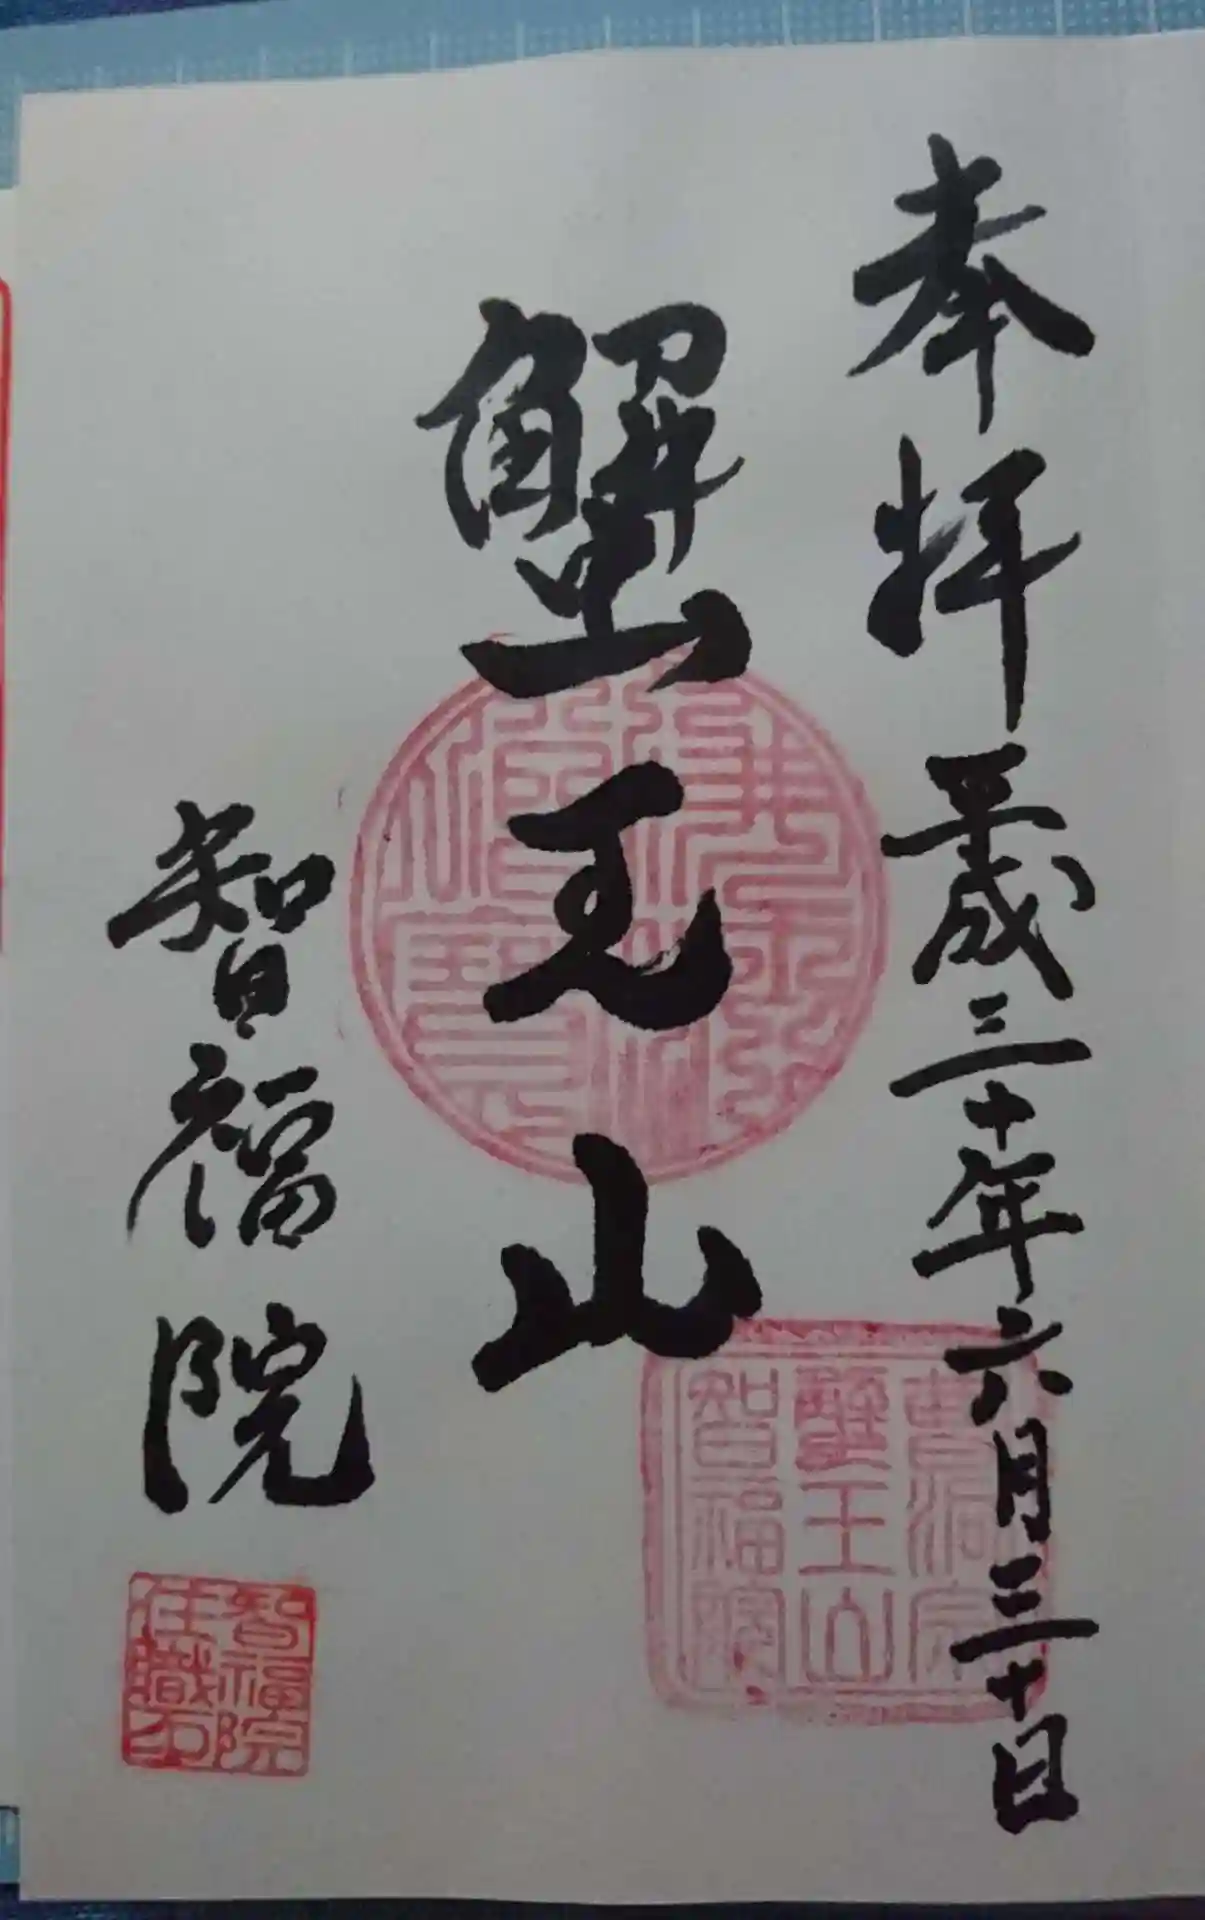 奉拝 平成三十年六月三十日
蟹王山
智福院
曹洞宗
蟹王山
智福院
智福院
住職印